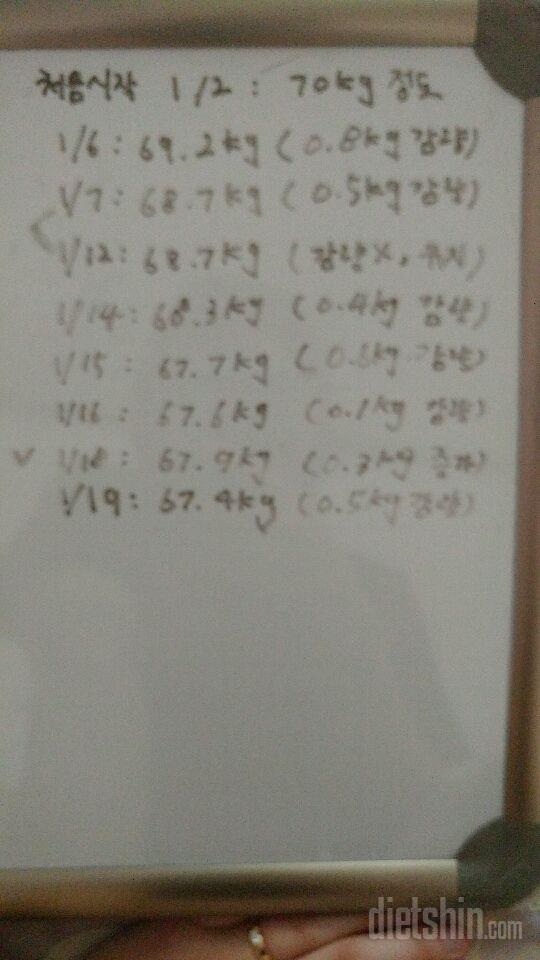 처음시작 1/2 : 70kg 정도
1/6 : 69.2kg (0.8kg 감량)
1/7 : 68.7kg (0.5kg 감량)
1/12 : 68.7kg (감량X, 유지)
1/14 : 68.3kg (0.4kg 감량)
1/15 : 67.7kg (0.6kg 감량)
1/16 : 67.6kg (0.1kg 감량)
1/18 : 67.9kg (0.3kg 증가)
1/19 : 67.4kg (0.5kg 감량)
dietshin.com